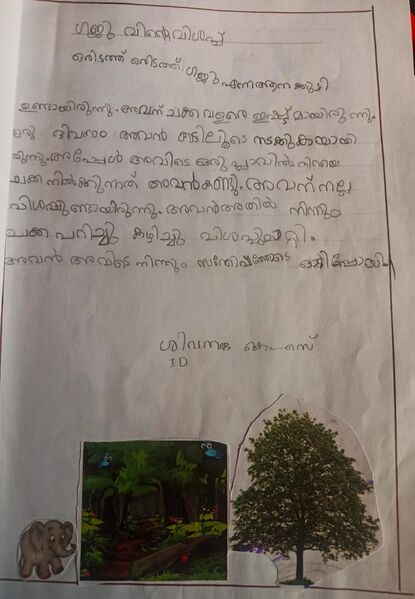 ഗജു വിന്റെവിശപ്പ്
ഒരിടത്ത് ഒരിടത്ത് ഗജു എന്നആനക്കുഴി
ഉണ്ടായിരുന്നു. അവന് ചക്ക വളരെ ഇഷ്ട മായിരു ന്നു.
ഒരു ദിവസം അവൻ കാടിലൂടെ നടക്കുകയായി
രുന്നു. അപ്പേൾ അവിടെ ഒരു പ്ലാവിൽ നിറയെ
ചക്ക നിൽക്കുന്നത് അവൻകണ്ടു. അവന് നല്ല
വിശപ്പുണ്ടായിരുന്നു. അവൻഅതിൽ നിന്നും
ചക്ക പറിച്ചു കഴിച്ചു വിശപ്പുമാറ്റി.
അവൻ അവിടെ നിന്നും സന്തോഷത്തോടെ ഓടിപ്പോയി
ശിവനന്ദ എസ്
ID